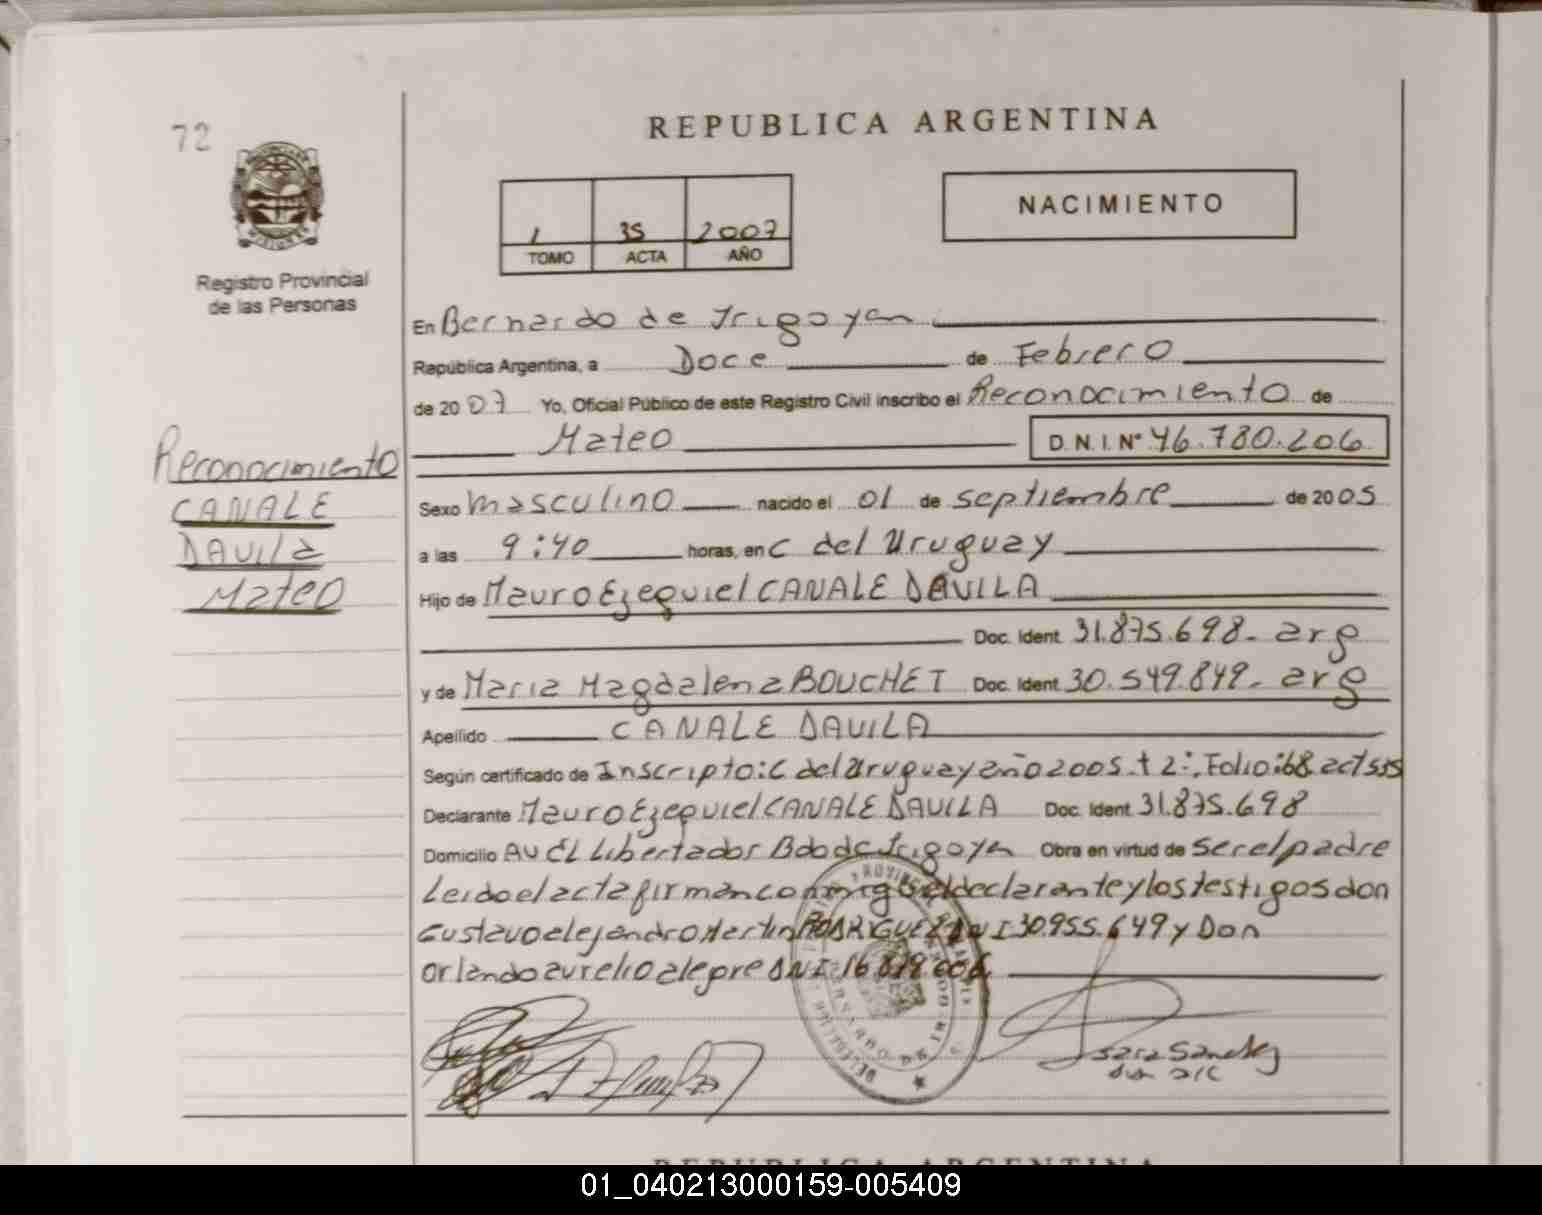 72
REPUBLICA ARGENTINA
NACIMIENTO
1 35 2007
TOMO ACTA AÑO
MISIONES
Registro Provincial
de las Personas
En Bernardo de Irigoyen
República Argentina, a Doce de Febrero
de 2007 Yo, Oficial Público de este Registro Civil inscribo el Reconocimiento de
Mateo D.N.I. Nº 46.780.206
Reconocimiento
CANALE
DAVILA
Mateo
Sexo Masculino nacido el 01 de septiembre de 2005
a las 9:40 horas, en C del Uruguay
Hijo de Mauro Ezequiel CANALE DAVILA
Doc. Ident. 31.875.698- arg
y de Maria Magdalena BOUCHET Doc. Ident. 30.549.849- arg
Apellido CANALE DAVILA
Según certificado de Inscripto: C del Uruguay año 2005. t 2:, Folio: 68
Declarante Mauro Ezequiel CANALE DAVILA Doc. Ident. 31.875.698
Domicilio AV EL Libertador Bdo de Irigoyen Obra en virtud de ser el padre
Leido el acta firman conmigo el declarante y los testigos don
Gustavo alejandro Martin RODRIGUEZ DNI 30.955.649 y Don
Orlando aurelio alegre DNI 16
Sara Sanchez
REPUBLICA ARGENTINA
01_040213000159-005409